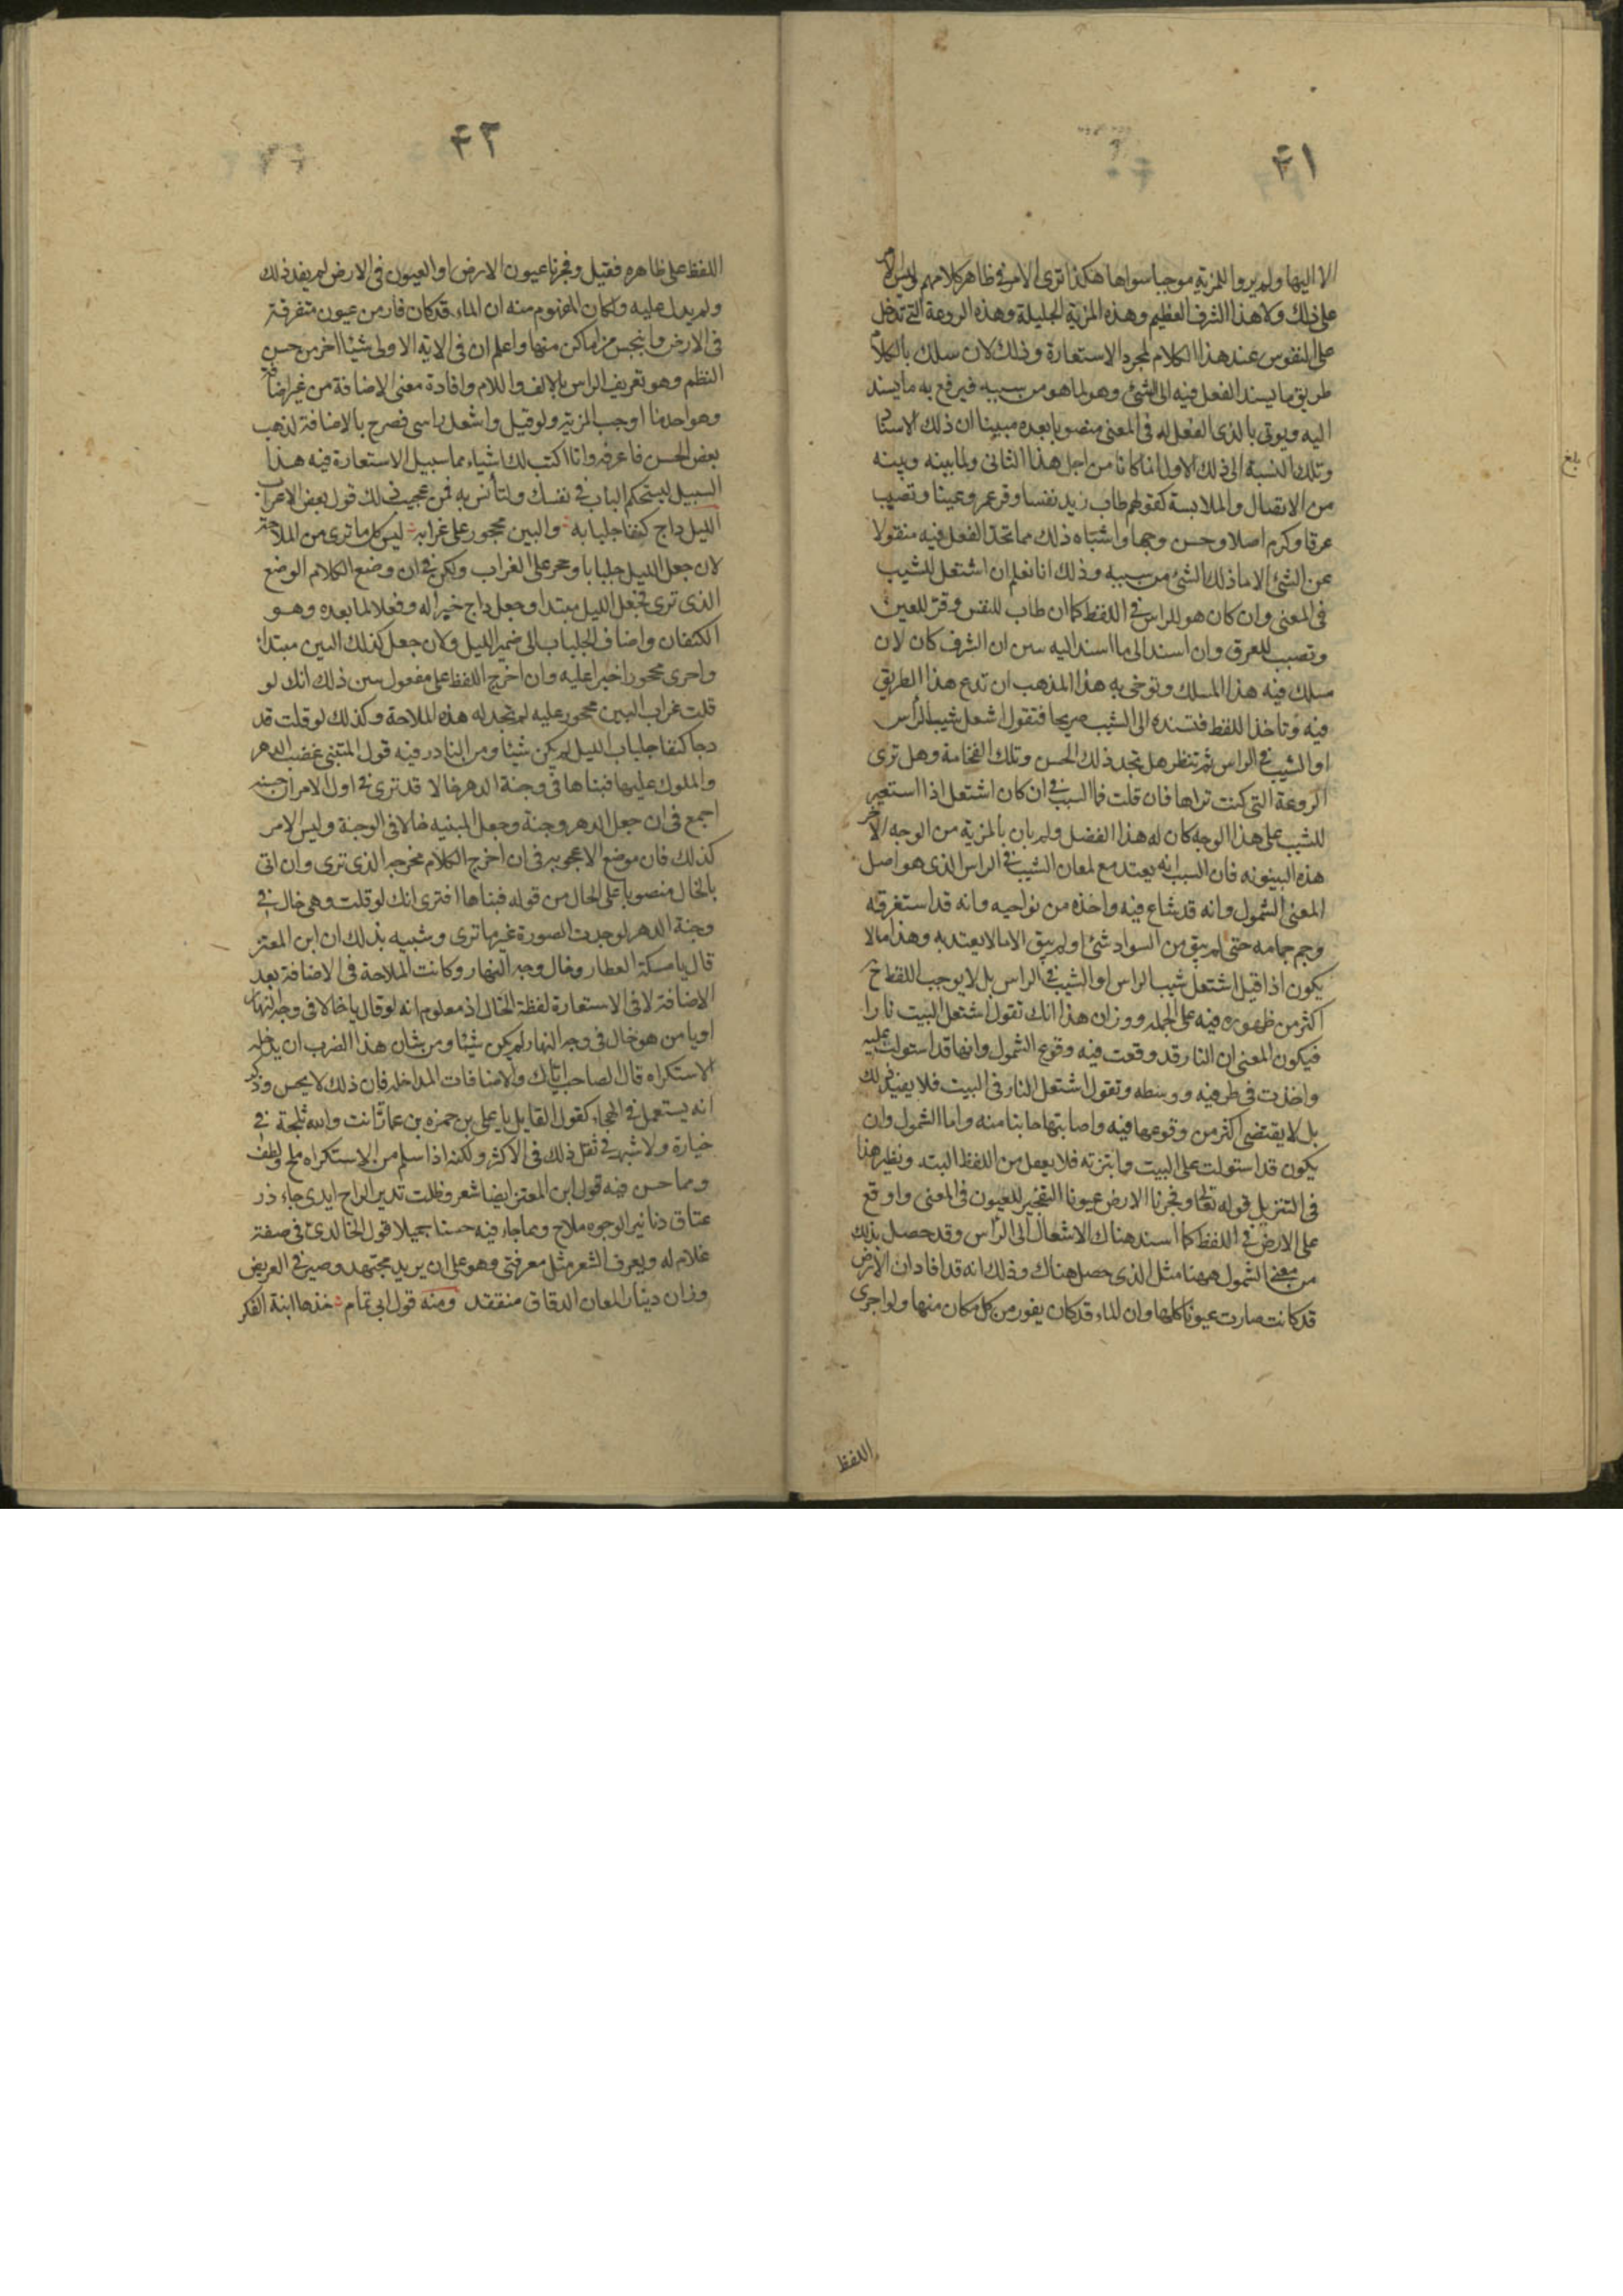 ٤١
الا اليها ولم يروا للمزية موجبا سواها هكذا ترى الامر في ظاهر كلامهم وليس الامر
على ذلك ولا هذا الشرف العظيم وهذه المزية الجليلة وهذه الروعة التي تدخل
على النفوس عند هذا الكلام لمجرد الاستعارة وذلك لان سلك بالكلام
طريق ما يسند الفعل فيه الى الشئ وهو لما هو من سببه فيرفع به ما يسند
اليه ويوتى بالذى الفعل له في المعنى منصوبا بعده مبينا ان ذلك الاسناد
وتلك النسبة الى ذلك الاول انما كانا من اجل هذا الثانى ولما بينه وبينه
من الاتصال والملابسة كقولهم طاب زيد نفسا وقر عمرو عينا وتصبب
عرقا وكرم اصلا وحسن وجها واشباه ذلك مما تجد الفعل فيه منقولا
عن الشئ الا ما ذلك الشئ من سببه وذلك انا نعلم ان اشتعل للشيب
في المعنى وان كان هو للراس في اللفظ كما ان طاب للنفس وقر للعين
وتصبب للعرق وان اسند الى ما اسند اليه سن ان الشرف كان لان
سلك فيه هذا المسلك وتوخى به هذا المذهب ان تدع هذا الطريق
فيه وتاخذ اللفظ فتسنده الى الشيب صريحا فتقول اشتعل شيب الراس
او الشيب في الراس ثم تنظر هل تجد ذلك الحسن وتلك الفخامة وهل ترى
الروعة التي كنت تراها فان قلت فما السبب في ان كان اشتعل اذا استعير
للشيب على هذا الوجه كان له هذا الفضل ولم بان بالمزية من الوجه الاخر
هذه البينونه فان السبب انه يعتد مع لمعان الشيب في الراس الذى هو اصل
المعنى الشمول وانه قد شاع فيه واخذه من نواحيه وانه قد استغرقه
وجم جمامه حتى لم يبق من السواد شئ او لم يبق الا ما لا يعتد به وهذا ما لا
يكون اذا قيل اشتعل شيب الراس او الشيب في الراس بل لا يوجب اللفظ ح
اكثر من ظهوره فيه على الجمله ووزان هذا انك تقول اشتعل البيت نارا
فيكون المعنى ان النار قد وقعت فيه وقوع الشمول وانها قد استولت عليه
واخذت في طرفيه ووسطه وتقول اشتعل النار في البيت فلا يفيد ذلك
بل لا يقتضى اكثر من وقوعها فيه واصابتها جانبا منه واما الشمول وان
يكون قد استولت على البيت وابتزته فلا يعقل من اللفظ البتة ونظير هذا
في التنزيل قوله تعالى وفجرنا الارض عيونا التفجير للعيون في المعنى واوقع
على الارض في اللفظ كما اسند هناك الاشتعال الى الراس وقد حصل بذلك
من معنى الشمول ههنا مثل الذى حصل هناك وذلك انه قد افاد ان الارض
قد كانت صارت عيونا كلها وان الماء قد كان يفور من كل مكان منها ولو اجرى
اللفظ
بلغ
٤٢
اللفظ على ظاهره فقيل وفجرنا عيون الارض او العيون في الارض لم يفد ذلك
ولم يدل عليه ولكان المفهوم منه ان الماء قد كان فار من عيون متفرقة
في الارض وانبجس من اماكن منها واعلم ان في الاية الاولى شيئا اخر من حسن
النظم وهو تعريف الراس بالالف واللام وافادة معنى الاضافة من غير اضافة
وهو احد ما اوجب المزية ولو قيل واشتعل راسى فصرح بالاضافة لذهب
بعض الحسن فاعرفه وانا اكتب لك اشياء مما سبيل الاستعارة فيه هذا
السبيل ليستحكم الباب في نفسك ولتأنس به فمن عجيب ذلك قول بعض الاعراب
الليل داج كنفا جلبابه والبين محجور على غرابه ليس كل ما ترى من الملاحة
لان جعل الليل جلبابا وحجر على الغراب ولكن في ان وضع الكلام الوضع
الذى ترى فجعل الليل مبتدا وجعل داج خبرا له وفعلا لما بعده وهو
الكنفان واضاف الجلباب الى ضمير الليل ولان جعل كذلك البين مبتدا
واجرى محجورا خبرا عليه وان اخرج اللفظ على مفعول سن ذلك انك لو
قلت غراب البين محجور عليه لم تجد له هذه الملاحة وكذلك لو قلت قد
دجا كنفا جلباب الليل لم يكن شيئا ومن النادر فيه قول المتنبى غضب الدهر
والملوك عليها فبناها في وجنة الدهر خالا قد ترى في اول الامر ان حسنه
اجمع في ان جعل الدهر وجنة وجعل المبنيه خالا في الوجنة وليس الامر
كذلك فان موضع الاعجوبه في ان اخرج الكلام مخرجه الذى ترى وان اتى
بالخال منصوبا على الحال من قوله فبناها افترى انك لو قلت وهى خال في
وجنة الدهر لوجدت الصورة غير ما ترى وشبيه بذلك ان ابن المعتز
قال يا مسكة العطار وخال وجه النهار وكانت الملاحة في الاضافة بعد
الاضافة لا في الاستعارة لفظة الخال اذ معلوم انه لو قال يا خالا في وجه النهار
او يا من هو خال في وجه النهار لم يكن شيئا ومن شان هذا الضرب ان يدخله
الاستكراه قال الصاحب اياك والاضافات المداخله فان ذلك لا يحسن وذكر
انه يستعمل في الهجاء كقول القايل يا على بن حمزه بن عمارة انت والله ثلجة في
خيارة ولا شبهة في ثقل ذلك في الاكثر ولكنه اذا سلم من الاستكراه ملح ولطف
ومما حسن فيه قول ابن المعتز ايضا شعر وظلت تدير الراح ايدى جاءذر
عتاق دنانير الوجوه ملاح ومما جاء فيه حسنا جميلا قول الخالدى في صفة
غلام له ويعرف الشعر مثل معرفتى وهو على ان يريد مجتهد وصير في القريض
وزان دينار المعان الدقاق منتقد ومنه قول ابى تمام خذها ابنة الفكر